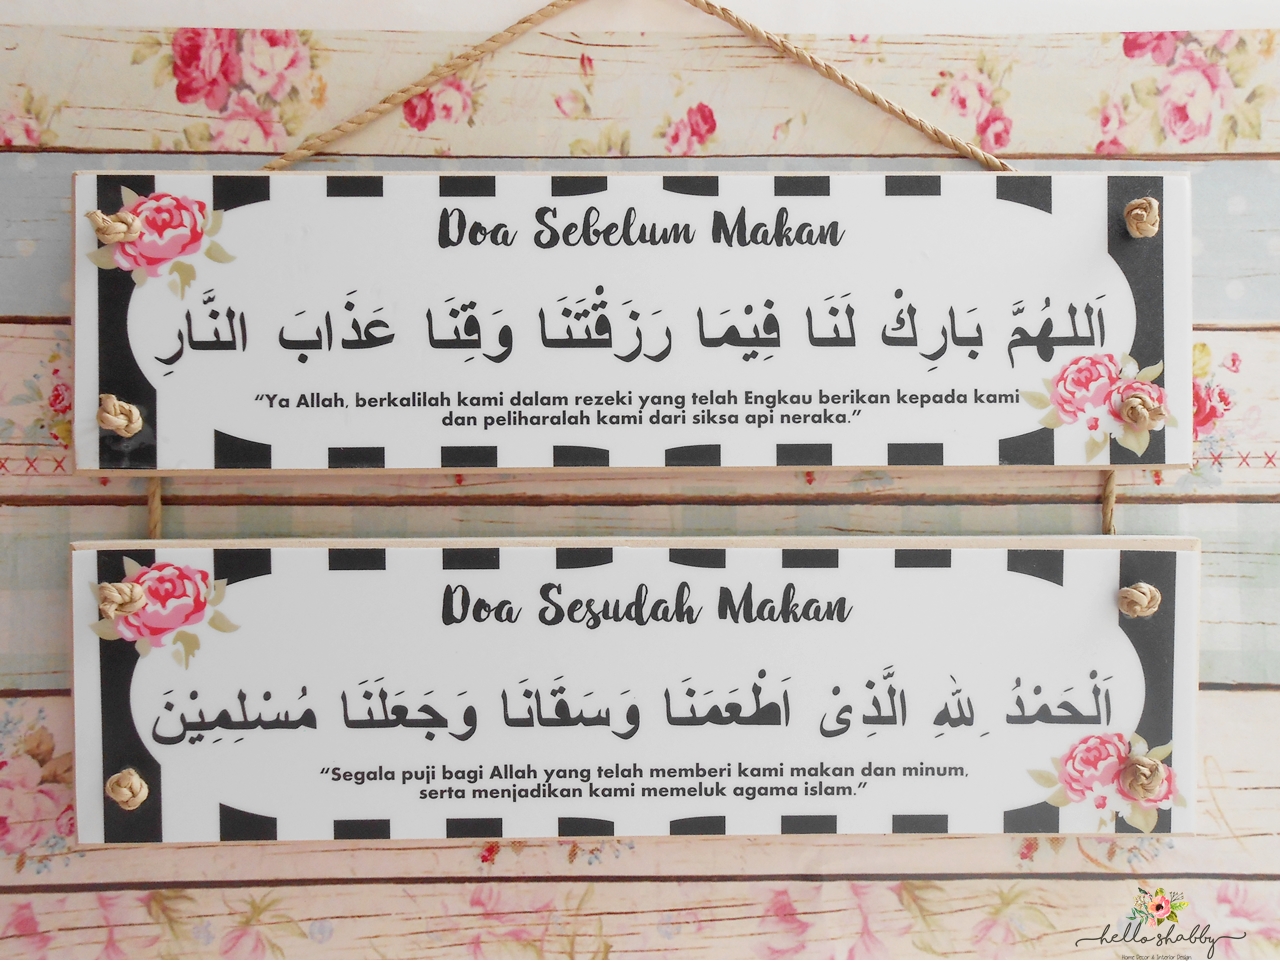 Doa Sebelum Makan
اَللهُمَّ بَارِكْ لَنَا فِيْمَا رَزَقْتَنَا وَقِنَا عَذَابَ النَّارِ
“Ya Allah, berkalilah kami dalam rezeki yang telah Engkau berikan kepada kami
dan peliharalah kami dari siksa api neraka.”
Doa Sesudah Makan
اَلْحَمْدُ لِلهِ الَّذِىْ اَطْعَمَنَا وَسَقَانَا وَجَعَلَنَا مُسْلِمِيْنَ
“Segala puji bagi Allah yang telah memberi kami makan dan minum,
serta menjadikan kami memeluk agama islam.”
hello shabby
Home Decor & Interior Design